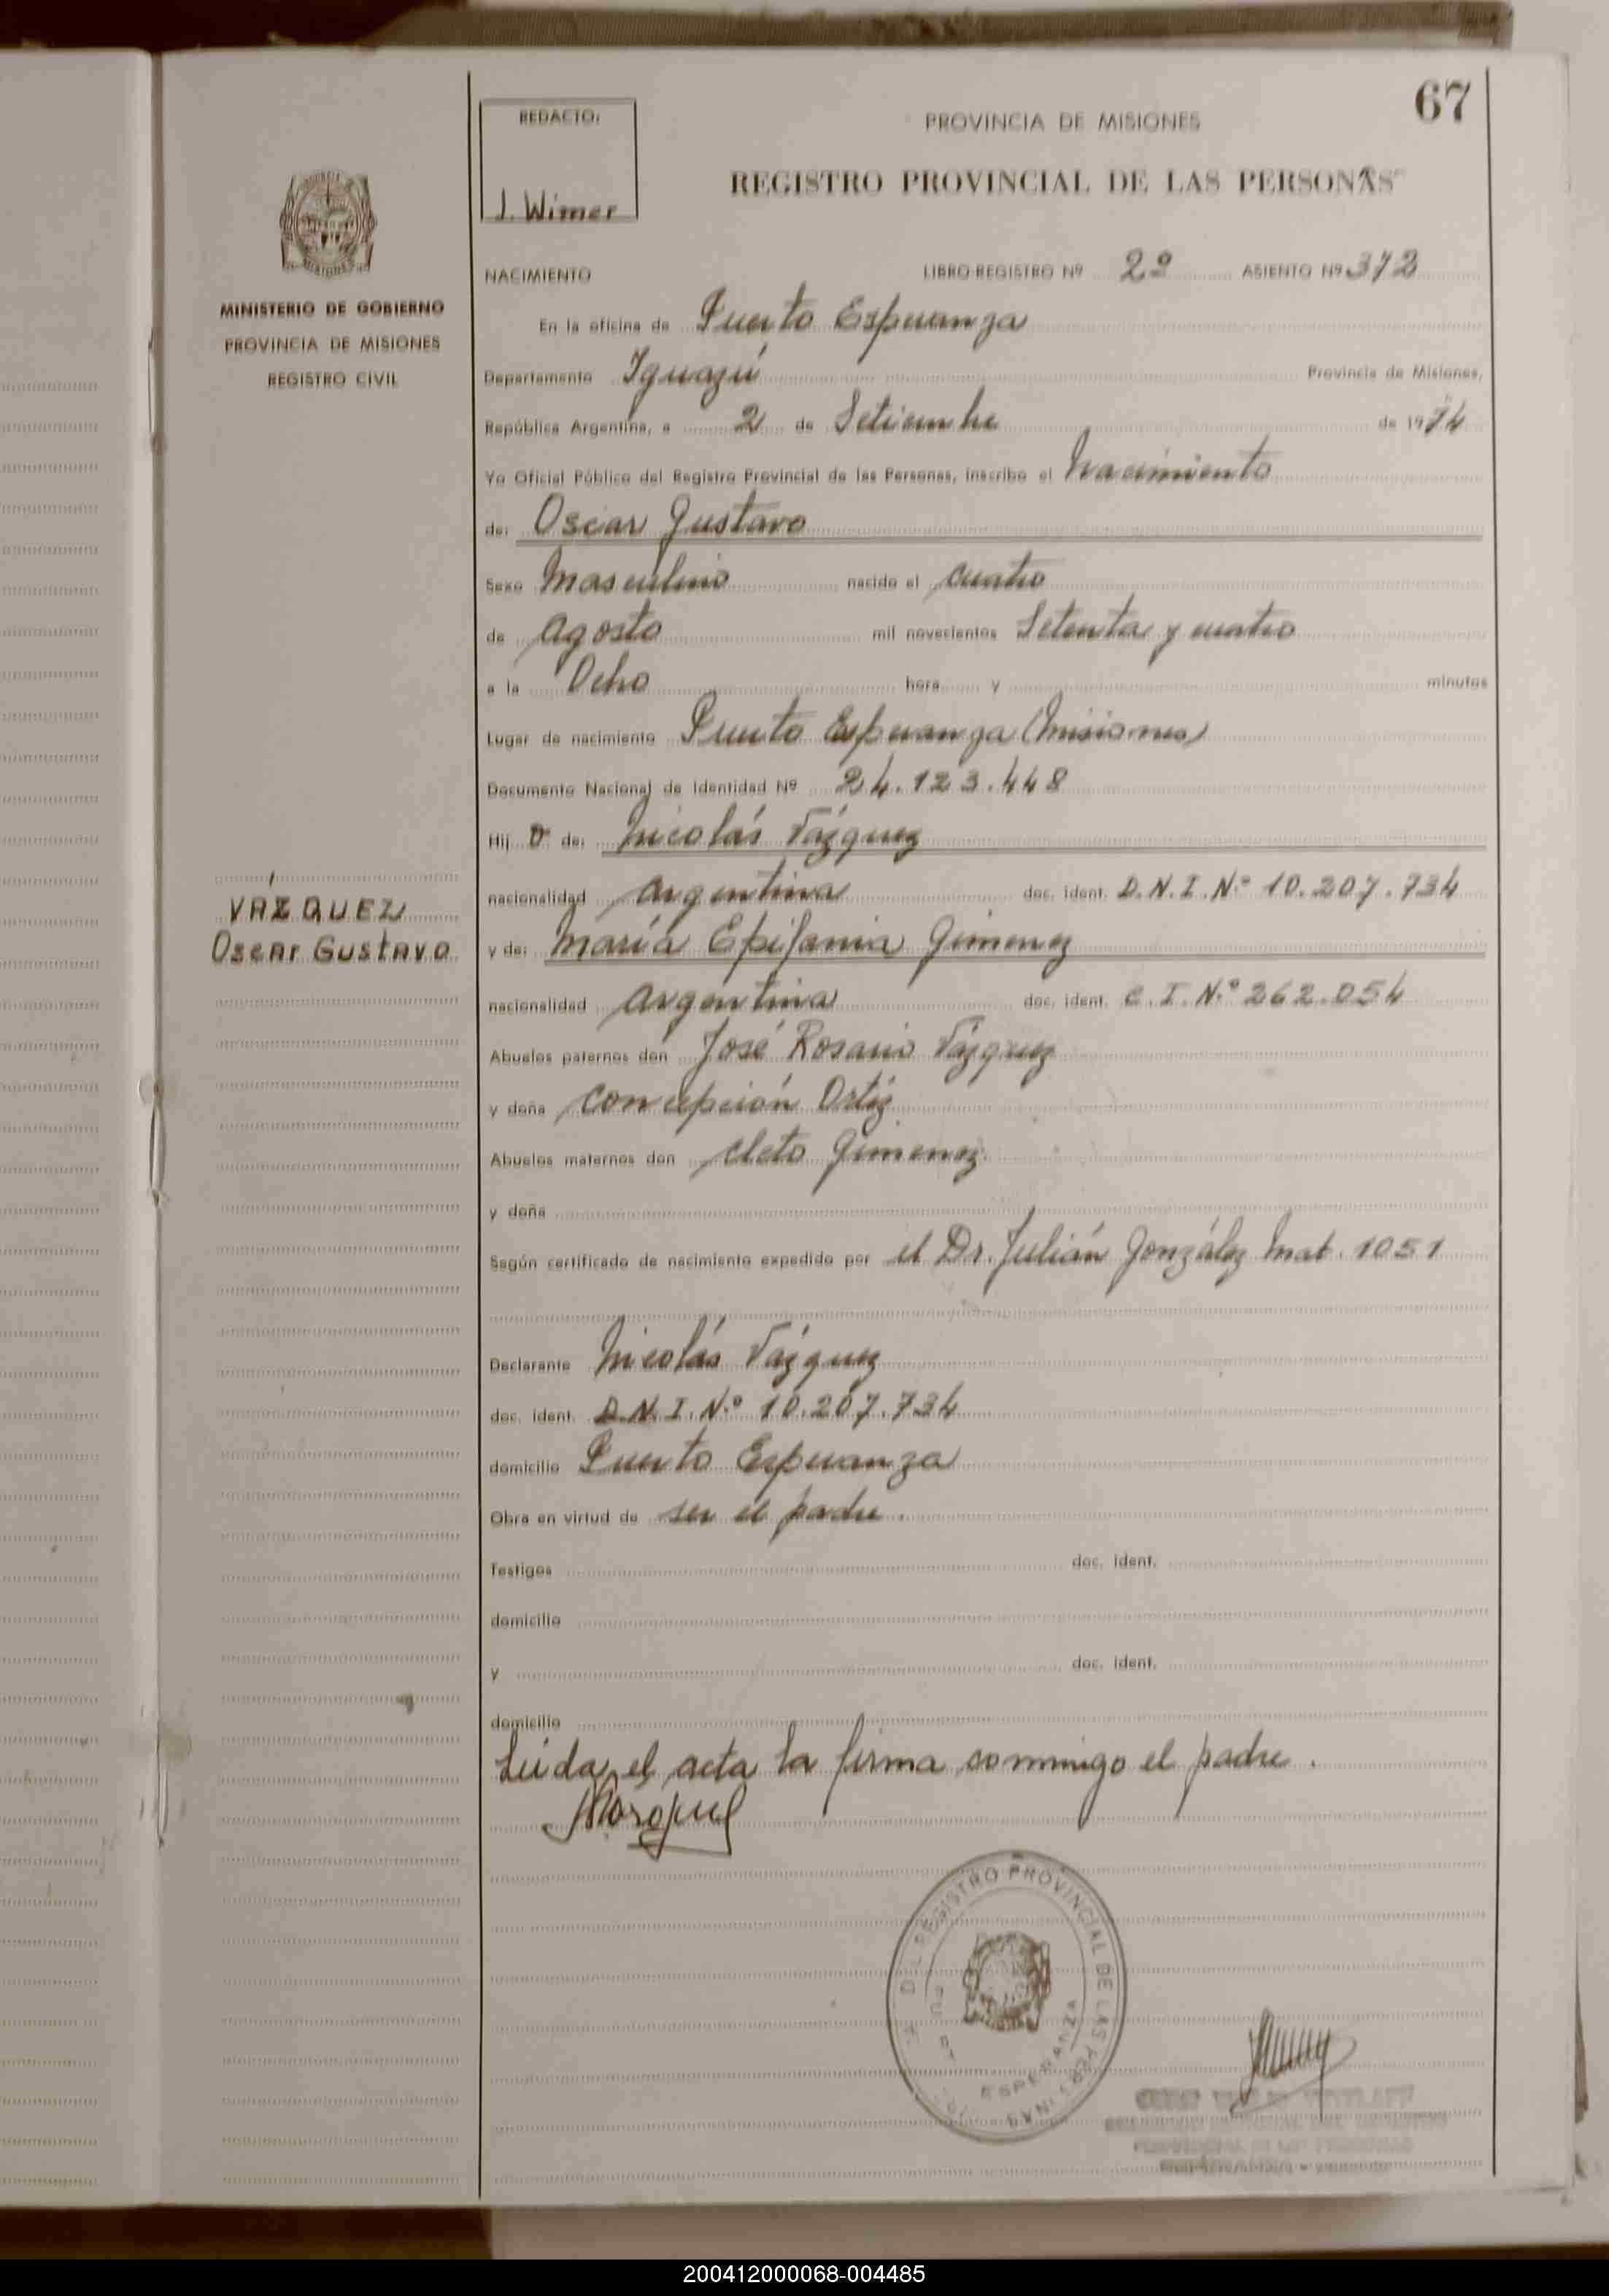 67
REDACTO:
J. Wimer
PROVINCIA DE MISIONES
REGISTRO PROVINCIAL DE LAS PERSONAS
MINISTERIO DE GOBIERNO
PROVINCIA DE MISIONES
REGISTRO CIVIL
NACIMIENTO LIBRO REGISTRO Nº 2º ASIENTO Nº 372
En la oficina de Puerto Esperanza
Departamento Iguazú Provincia de Misiones,
República Argentina, a 2 de Setiembre de 1974
Yo Oficial Público del Registro Provincial de las Personas, inscribo el Nacimiento
de: Oscar Gustavo
Sexo Masculino nacido el cuatro
de Agosto mil novecientos Setenta y cuatro
a la Ocho hora y minutos
Lugar de nacimiento Puerto Esperanza (Misiones)
Documento Nacional de Identidad Nº 24.123.448
Hij o de: Nicolás Vázquez
nacionalidad Argentina doc. ident. D.N.I.N.º 10.207.734
VÁZQUEZ
Oscar Gustavo
y de: María Epifania Gimenez
nacionalidad Argentina doc. ident. C.I.N.º 262.054
Abuelos paternos don José Rosario Vázquez
y doña Concepción Ortíz
Abuelos maternos don Cleto Gimenez.
y doña
Según certificado de nacimiento expedido por el Dr. Julián González Mat. 1051
Declarante Nicolás Vázquez
doc. ident. D.N.I.N.º 10.207.734
domicilio Puerto Esperanza
Obra en virtud de ser el padre.
Testigos doc. ident.
domicilio
y doc. ident.
domicilio
Leída el acta la firma conmigo el padre.
DEL REGISTRO PROVINCIAL DE LAS PERSONAS
ESPERANZA
200412000068-004485